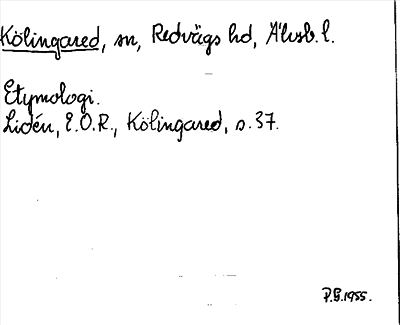 Kölingared, sn, Redvägs hd, Älvsb. l.
Etymologi.
Lidén, E.O.R., Kölingared, s. 37.
P.G. 1955.